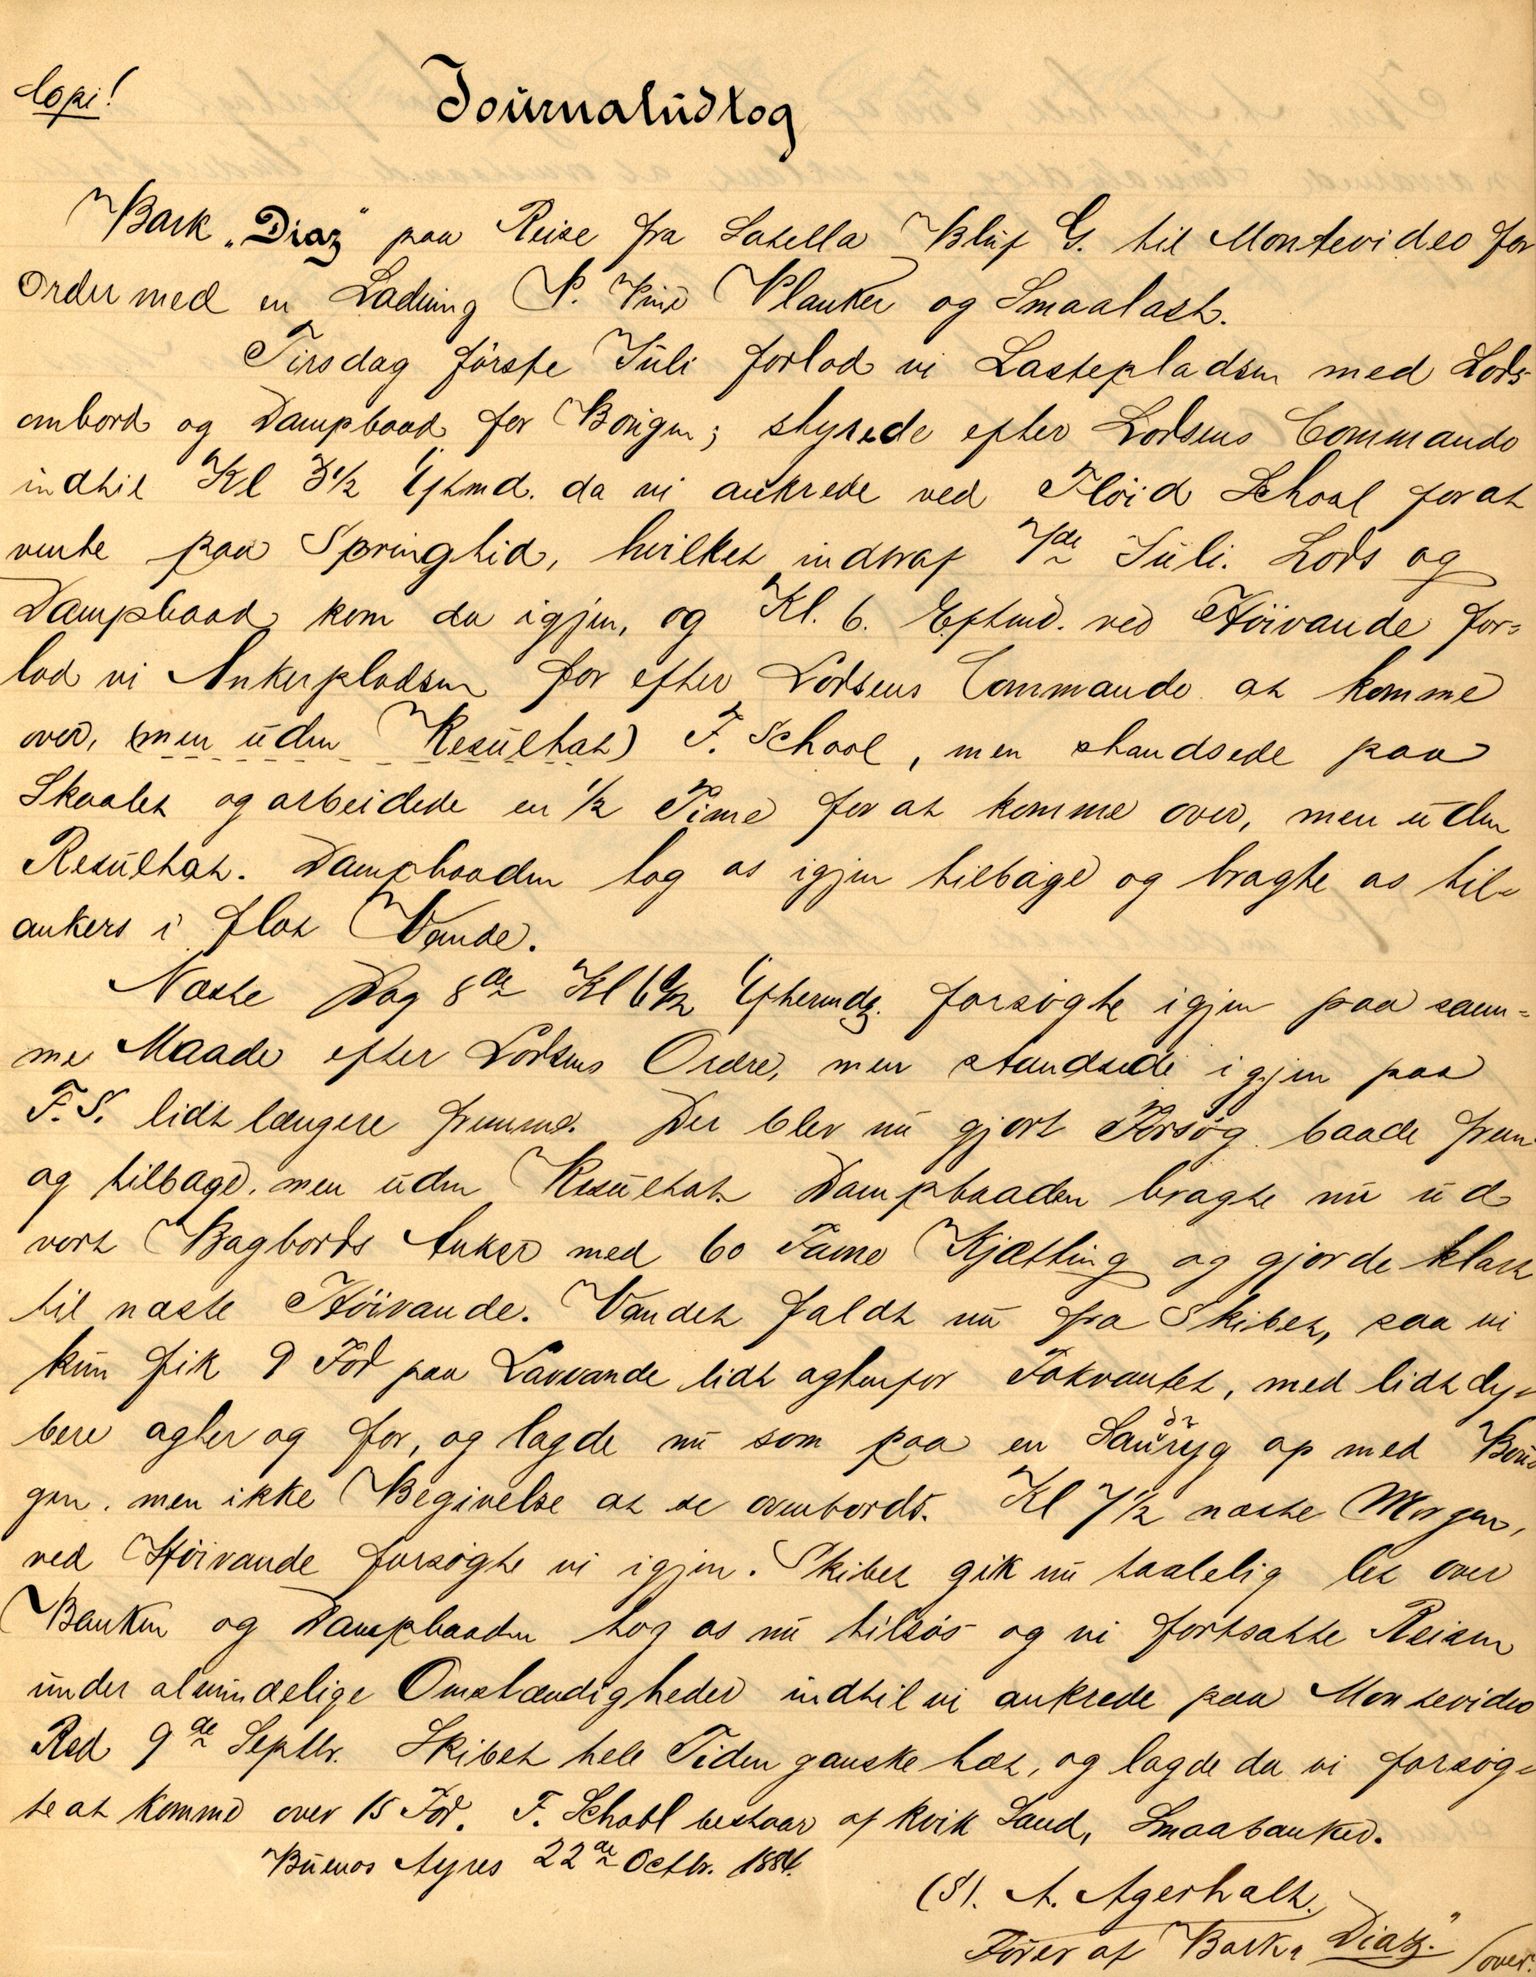 Copi!
Journaludtog
Bark "Diaz" paa Reise fra Satella Bluf G. til Montevideo for
Order med en Ladning P. Pine Planker og Smaalast.
Tirsdag förste Juli forlod vi Lastepladsen med Lods
ombord og Dampbaad for Bougen; styrede efter Lodsens Commando
indtil Kl 3½ Eftmd. da vi ankrede ved Flöid Schoal for at
vente paa Springtid, hvilket indtraf 7de Juli. Lods og
Dampbaad kom da igjen, og Kl. 6. Eftmd. ved Höivande for=
lod vi Ankerpladsen for efter Lodsens Commando at komme
over, (men uden Resultat) F. School, men standsede paa
Skoalet og arbeidede en ½ Time for at komme over, men uden
Resultat. Dampbaaden tog os igjen tilbage og bragte os til=
ankers i flot Vande.
Næste Dag 8de Kl 6½ Eftermdg. forsögte igjen paa sam=
me Maade efter Lodsens Ordre, men standsede igjen paa
F. S. lidt længere fremme. Der blev nu gjort Forsög baade frem
og tilbage, men uden Resultat. Dampbaaden bragte nu ud
vort Bagbords Anker med 60 Favne Kjætting og gjorde klart
til næste Höivande. Vandet faldt nu fra Skibet, saa vi
kun fik 9 Fod paa Lavvande lidt agtenfor Fokvantet, med lidt dy=
bere agter og for, og lagde nu som paa en Sandryg op med Bou=
gen, men ikke Begivelse at se ovenbords. Kl 7½ næste Morgen,
ved Höivande forsögte vi igjen. Skibet gik nu taalelig let over
Banken og Dampbaaden tog os nu tilsös og vi fortsatte Reisen
under almindelige Omstændigheder indtil vi ankrede paa Montevideo
Red 9de Septbr. Skibet hele Tiden ganske tæt, og lagde da vi forsög=
te at komme over 15 Fod. F. Schoal bestaar af kvik Sand, Smaabanker.
Buenos Ayres 22de Octbr. 1884.
(S). A. Agerholt.
Förer af Bark "Diaz."
/over.